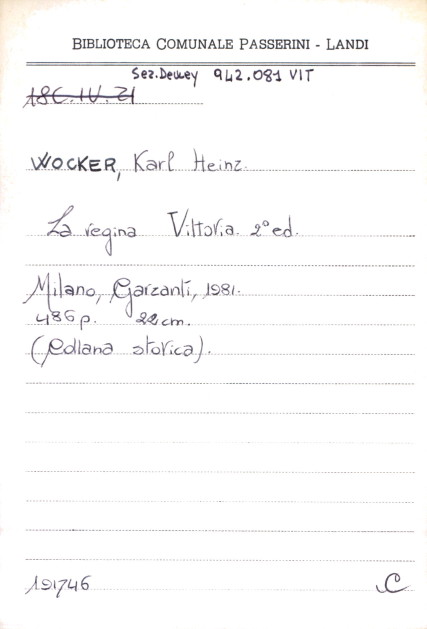 BIBLIOTECA COMUNALE PASSERINI - LANDI
Sez. Dewey 942.081 VIT
18C.IV.21
WOCKER, Karl Heinz.
La regina Vittoria. 2° ed.
Milano, Garzanti, 1981.
486 p. 22 cm.
(Collana storica).
191746 C